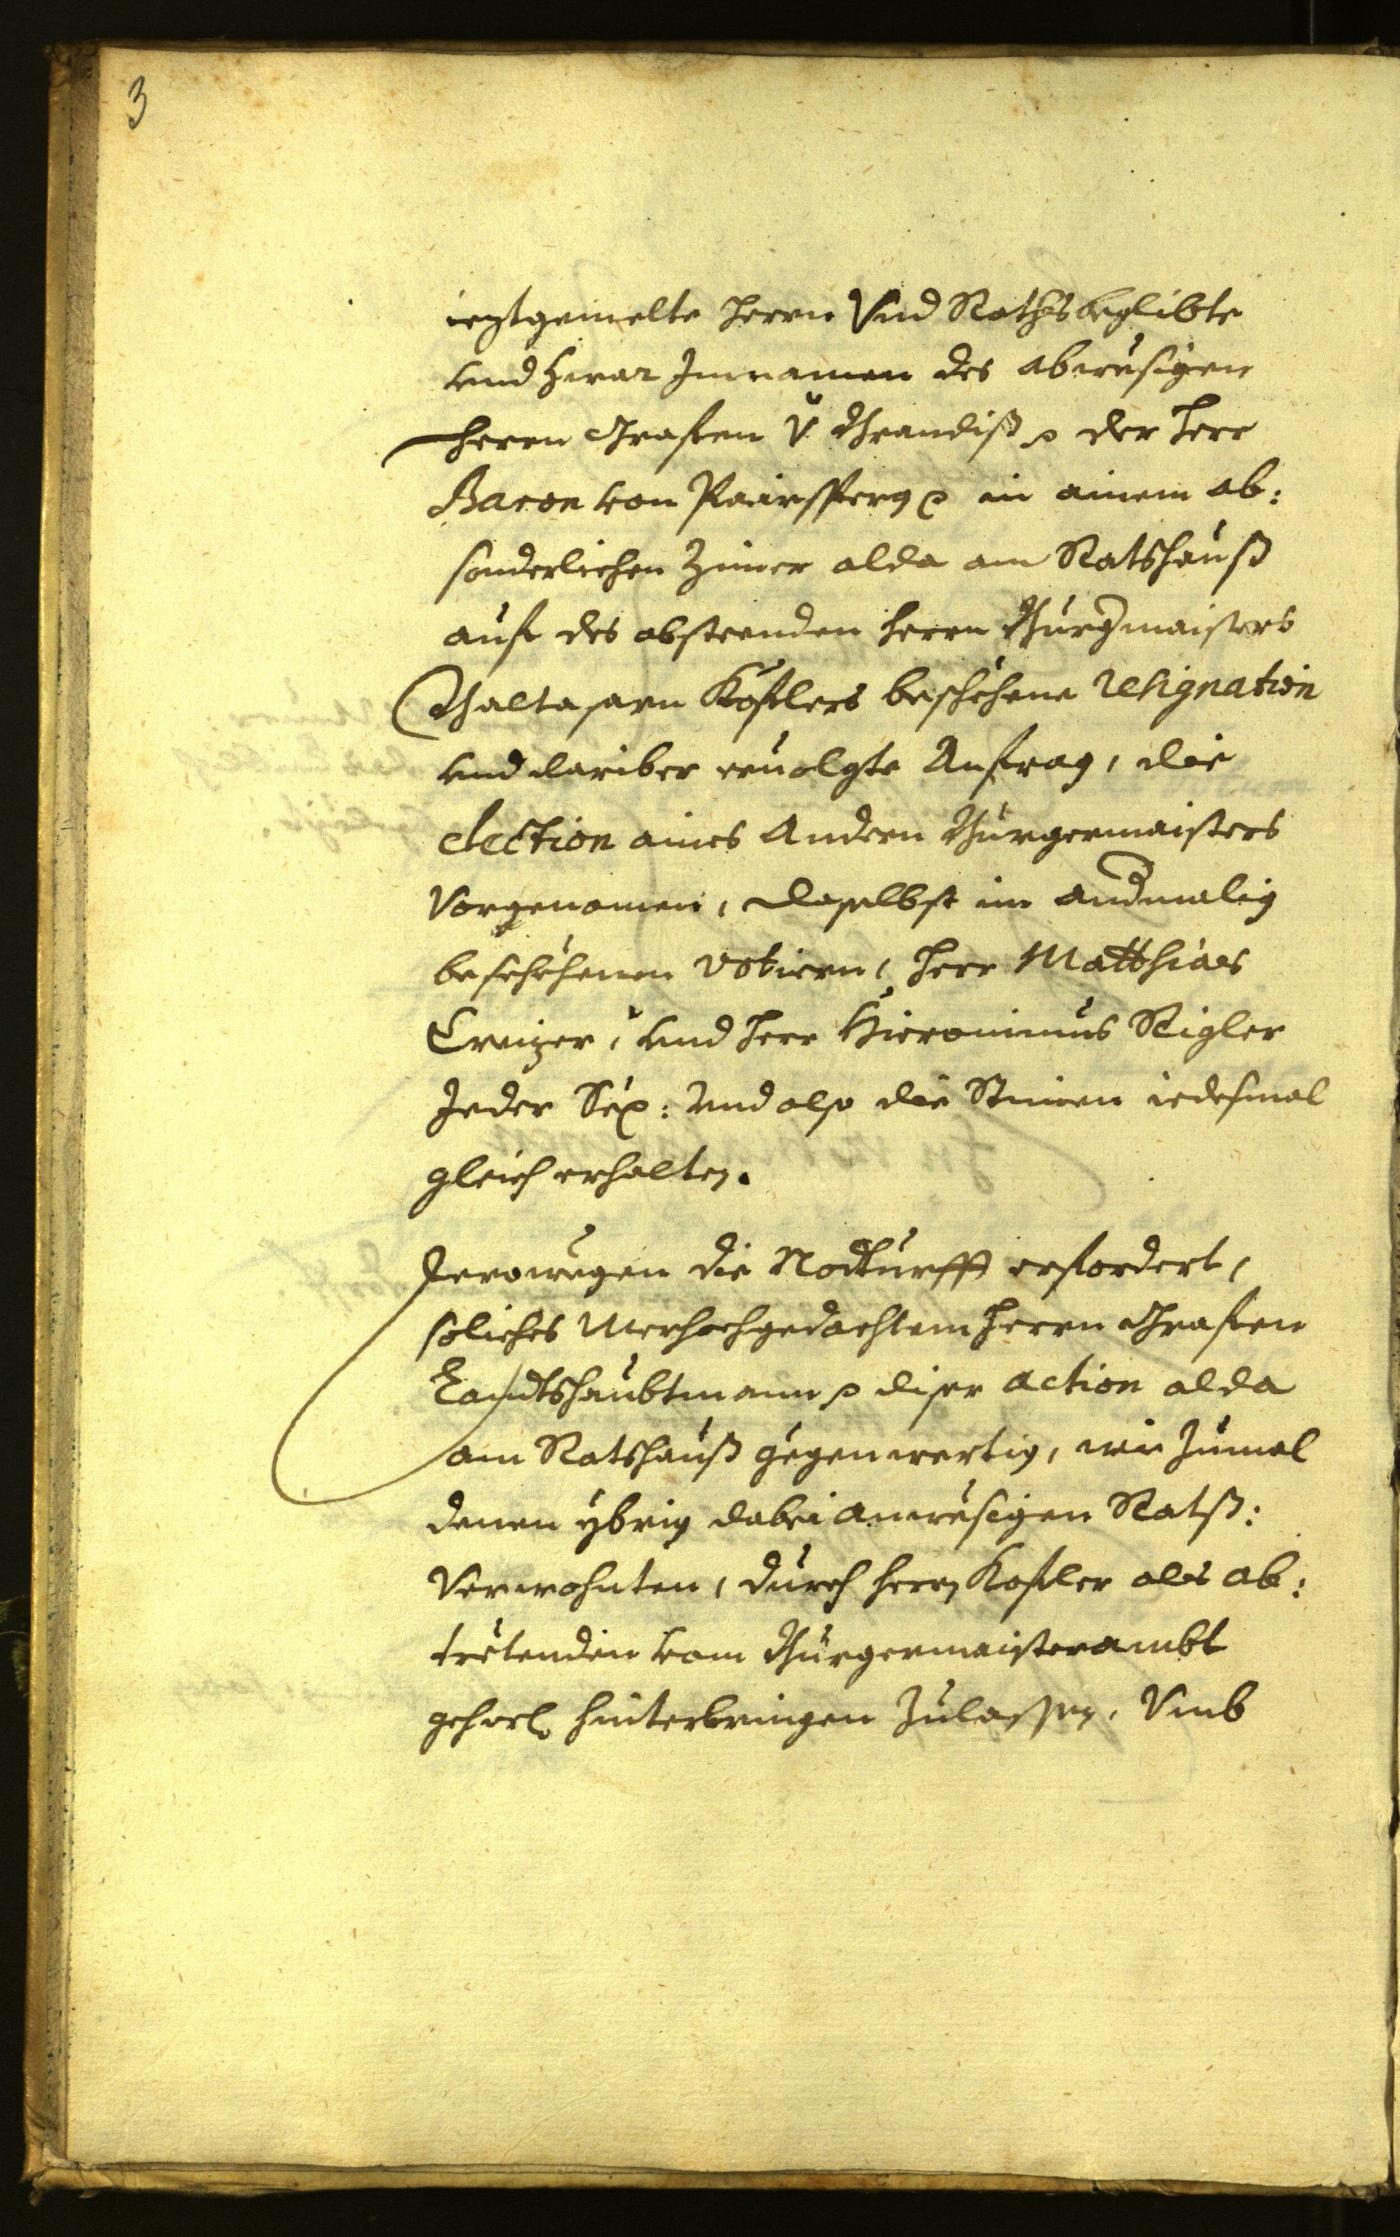 3
ieztgemelte Herrn Vnd Rathsbeglibte
vnd Zwar Innamen des abwesigen
Herrn Grafen V. Brandiß der Herr
Baron von Paÿrsperg in ainem ab:
sonderlichen Zimer alda am Ratshauß
auf des abstenden Herrn Burgmaisters
Balthasarn Kofflers beschehene resignation
vnd dariber ervolgte Anfrag, die
election aines Andern Burgermaisters
Vorgenomen, daselbst im andmalig
beschehenen votiern, Herr Matthias
Creizer, vnd Herr Hieronimus Rigler
Jeder Sex: Vnd also die Stimen iedesmal
gleich erhalten.
Derowegen die Nodturfft erfordert,
soliches Merhochgedachtem Herrn Grafen
Landtshaubtmann diser action alda
am Ratshauß gegenwertig, wie Zumal
denen ybrig dabei anwesigen Ratß:
Verwohnten, durch Herrn Kofler als ab:
tretenden vom Burgermaisterambt
gehorl hinterbringen Zulassen, Vmb